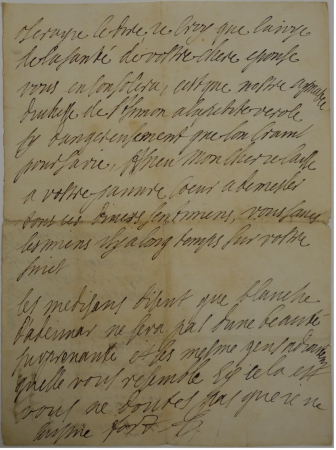 oseray je le dire, je croy que la joye
de la santé de vostre chere epouse
vous en consolera, cest que nostre
duchesse de St Simon a la petite verole
sy dangereusement que lon craint
pour sa vie, Adieu mon cher je laisse
a vostre pauvre coeur a demesler
tous ces divers sentimens, vous savez
les miens il y a long temps sur vostre
sujet
les medisans disent que blanche
ne sera pas dune beauté
surprenante et les mesme gens
quelle vous resemble sy cela est
vous ne doutez pas que je ne
laisme fort